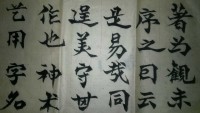 著为觀未
序之曰云
是易哉同
逞美
作也神术
用字名